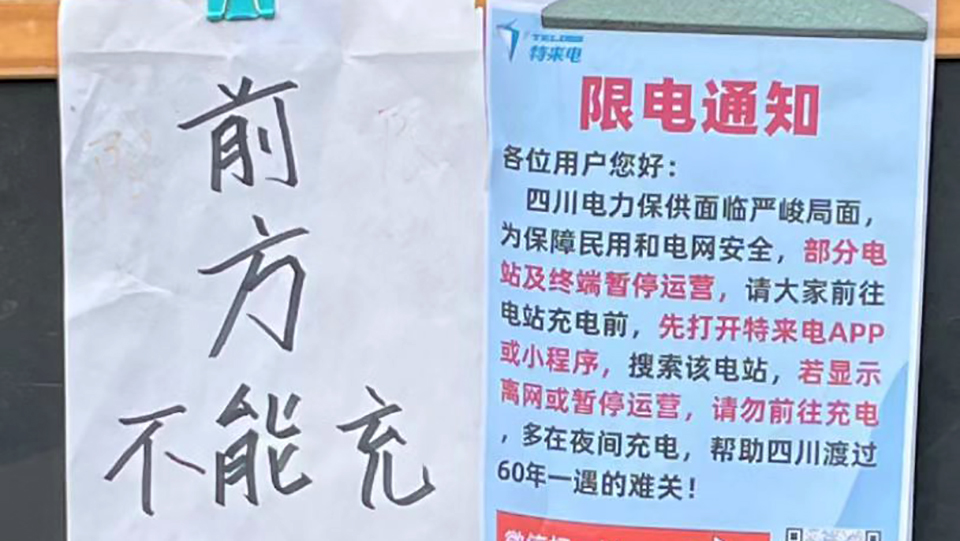 前
方
不能充
TELD
特来电
限电通知
各位用户您好：
四川电力保供面临严峻局面，
为保障民用和电网安全，部分电
站及终端暂停运营，请大家前往
电站充电前，先打开特来电APP
或小程序，搜索该电站，若显示
离网或暂停运营，请勿前往充电
，多在夜间充电，帮助四川渡过
60年一遇的难关！